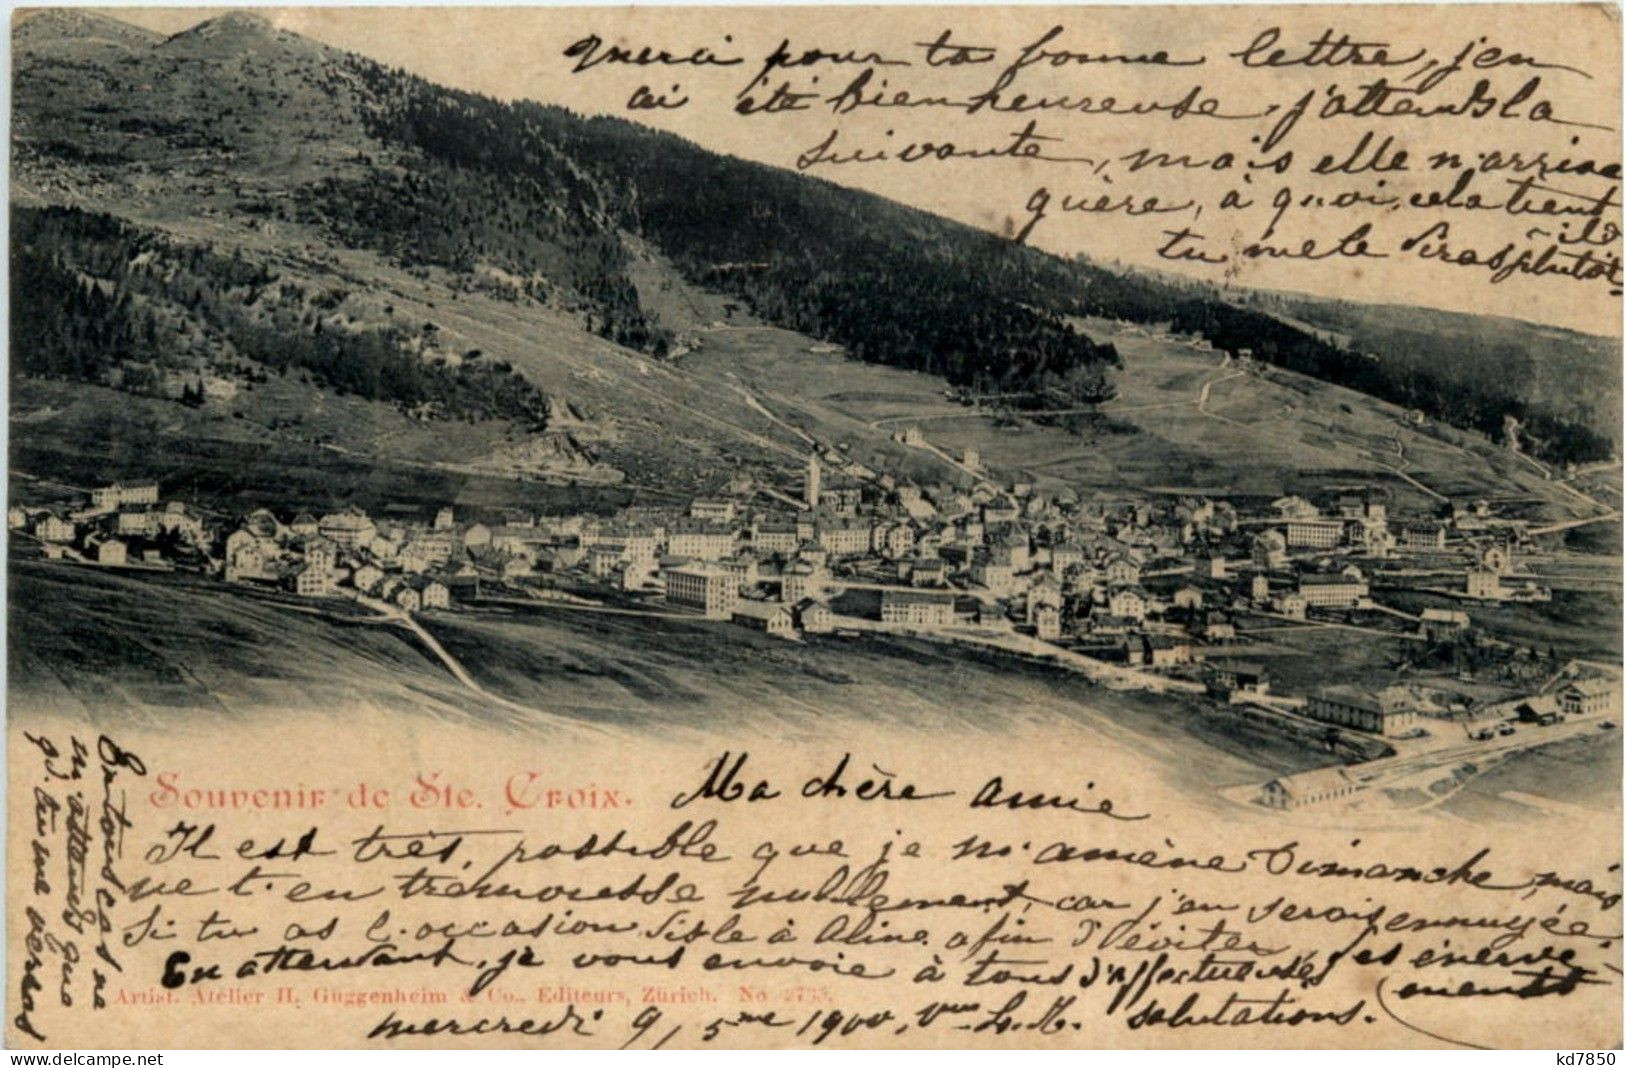 merci pour ta bonne lettre, j'en
ai été bien heureuse, j'attends la
suivante, mais elle n'arrive
guère, à quoi, cela tient-il?
tu me le diras plutôt
Souvenir de Ste. Croix.
Ma chère amie
Il est très, possible que je m'amène Dimanche, mais
ne t'en trémousse nullement, car j'en serais ennuyée.
Si tu as l'occasion dis le à Aline afin d'éviter, ses énerve-
ments
En attendant, je vous envoie à tous d'affectueuses
salutations.
Artist. Atelier H. Guggenheim & Co., Editeurs, Zürich. No 2735.
mercredi 9, 5me 1900,
En tous cas ne
m'attends que
qd. tu me verras
kd7850